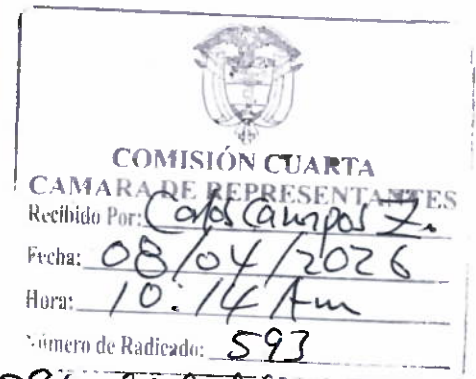 COMISIÓN CUARTA
CAMARA DE REPRESENTANTES
Recibido Por: Carlos Campos Z.
Fecha: 08/04/2026
Hora: 10:14 Am
Número de Radicado: 593